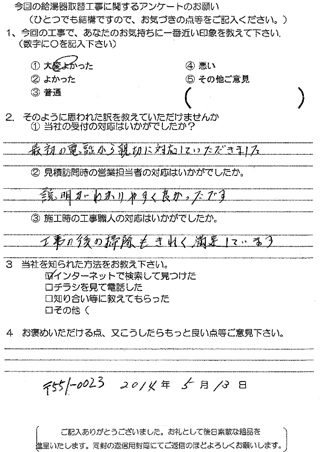 今回の給湯器取替工事に関するアンケートのお願い
(ひとつでも結構ですので、お気づきの点等をご記入ください。)
1、今回の工事で、あなたのお気持ちに一番近い印象を教えて下さい。
(数字に〇を記入下さい)
① 大変よかった ④ 悪い
② よかった ⑤ その他ご意見
③ 普通 ( )
2. そのように思われた訳を教えていただけませんか
① 当社の受付の対応はいかがでしたか?
最初の電話から親切に対応していただきました
② 見積訪問時の営業担当者の対応はいかがでしたか。
説明がわかりやすく良かったです
③ 施工時の工事職人の対応はいかがでしたか。
工事の後の掃除もきれいで満足しています
3 当社を知られた方法をお教え下さい。
☑インターネットで検索して見つけた
□チラシを見て電話した
□知り合い等に教えてもらった
□その他(
4 お褒めいただける点、又こうしたらもっと良い点等ご意見下さい。
〒551-0023 2014 年 5 月 13 日
ご記入ありがとうございました。お礼として後日素敵な粗品を
進呈いたします。同封の返信用封筒にてご返信のほどよろしくお願いします。